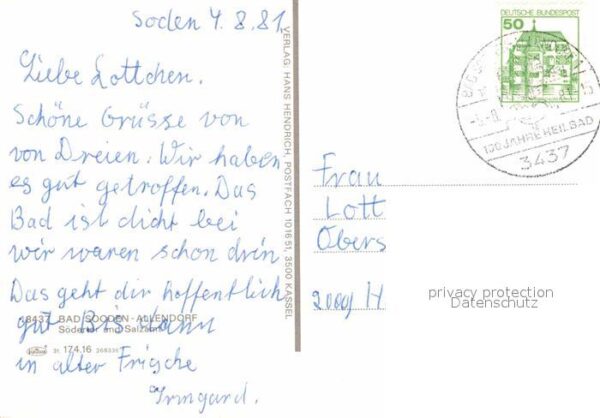 Soden 4.8.81
Liebe Lottchen.
Schöne Grüsse von
von Dreien. Wir haben
es gut getroffen. Das
Bad ist dicht bei
wir waren schon drin
Das geht dir hoffentlich
gut Bis dann
in alter Frische
Irmgard.
3437 BAD SOODEN-ALLENDORF
Söder und Salzamt
31 174.16 268335
VERLAG: HANS HENDRICH, POSTFACH 101651, 3500 KASSEL
DEUTSCHE BUNDESPOST
50
100 JAHRE HEILBAD
3437
Frau
Lott
Obers
2000 H
privacy protection
Datenschutz